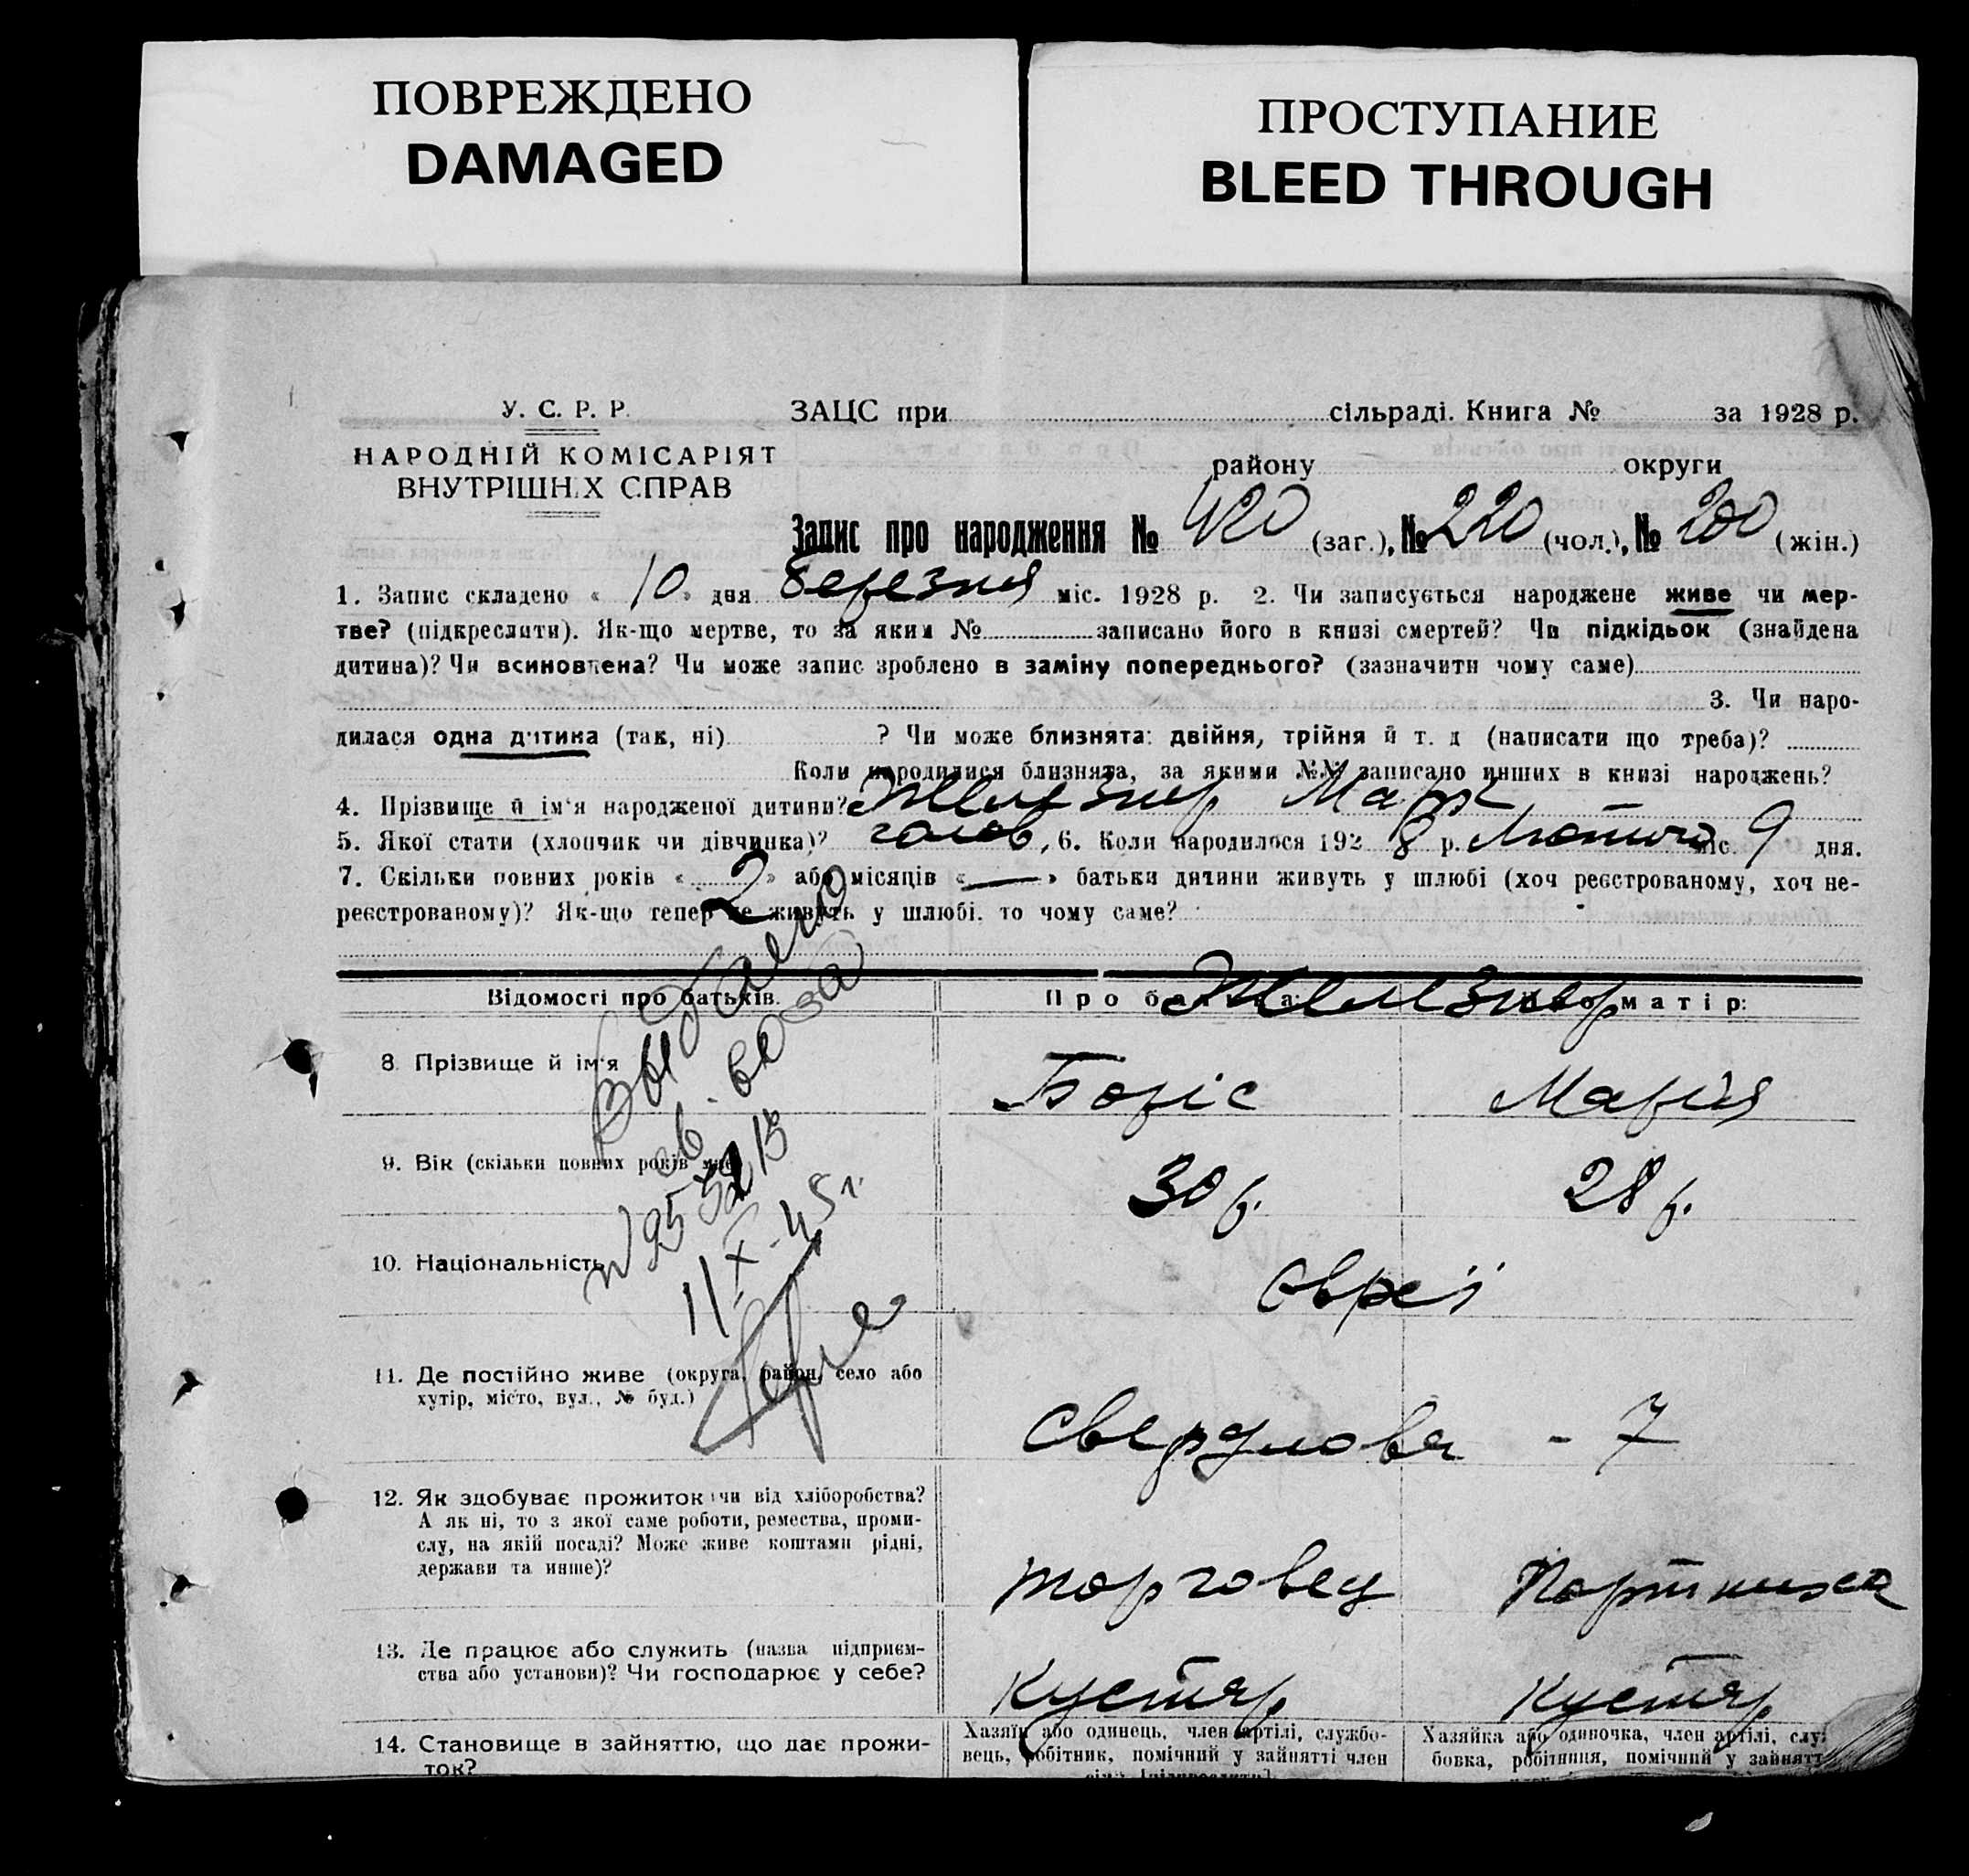 ПОВРЕЖДЕНО
DAMAGED
ПРОСТУПАНИЕ
BLEED THROUGH
У. С. Р. Р.
НАРОДНІЙ КОМІСАРІЯТ
ВНУТРІШНІХ СПРАВ
ЗАЦС при сільраді. Книга № за 1928 р.
району округи
Запис про народження № 420 (заг.), № 220 (чол.), № 200 (жін.)
1. Запис складено « 10 » дня Березня міс. 1928 р. 2. Чи записується народжене живе чи мер-
тве? (підкреслити). Як-що мертве, то за яким № записано його в книзі смертей? Чи підкідьок (знайдена
дитина)? Чи всиновлена? Чи може запис зроблено в заміну попереднього? (зазначити чому саме)
3. Чи наро-
дилася одна дитина (так, ні) ? Чи може близнята: двійня, трійня й т. д (написати що треба)?
Коли народилися близнята, за якими №№ записано инших в книзі народжень?
4. Прізвище й ім'я народженої дитини? Железнер Марк
5. Якої стати (хлопчик чи дівчинка)? чолов, 6. Коли народилося 192 8 р. Лютого міс. 9 дня.
7. Скільки повних років « 2 » або місяців « — » батьки дитини живуть у шлюбі (хоч реєстрованому, хоч не-
реєстрованому)? Як-що тепер не живуть у шлюбі, то чому саме?
Відомості про батьків. Про батька: Про матір:
Железнер
8. Прізвище й ім'я Боріс Марія
9. Вік (скільки повних років має) 30 р. 28 р.
10. Національність євреї
11. Де постійно живе (округа, район, село або
хутір, місто, вул., № буд.)
Свердлова - 7
12. Як здобуває прожиток: чи від хліборобства?
А як ні, то з якої саме роботи, ремества, проми-
слу, на якій посаді? Може живе коштами рідні,
держави та инше)?
торговец Портниха
13. Де працює або служить (назва підприєм-
ства або установи)? Чи господарює у себе?
Кустяр Кустяр
14. Становище в зайняттю, що дає прожи-
ток?
Хазяїн або одинець, член артілі, службо-
вець, робітник, помічний у зайнятті член
Хазяйка або одиночка, член артілі, слу
бовка, робітниця, помічний у зайнятт
Выдано
св-во
11/X-45 г.